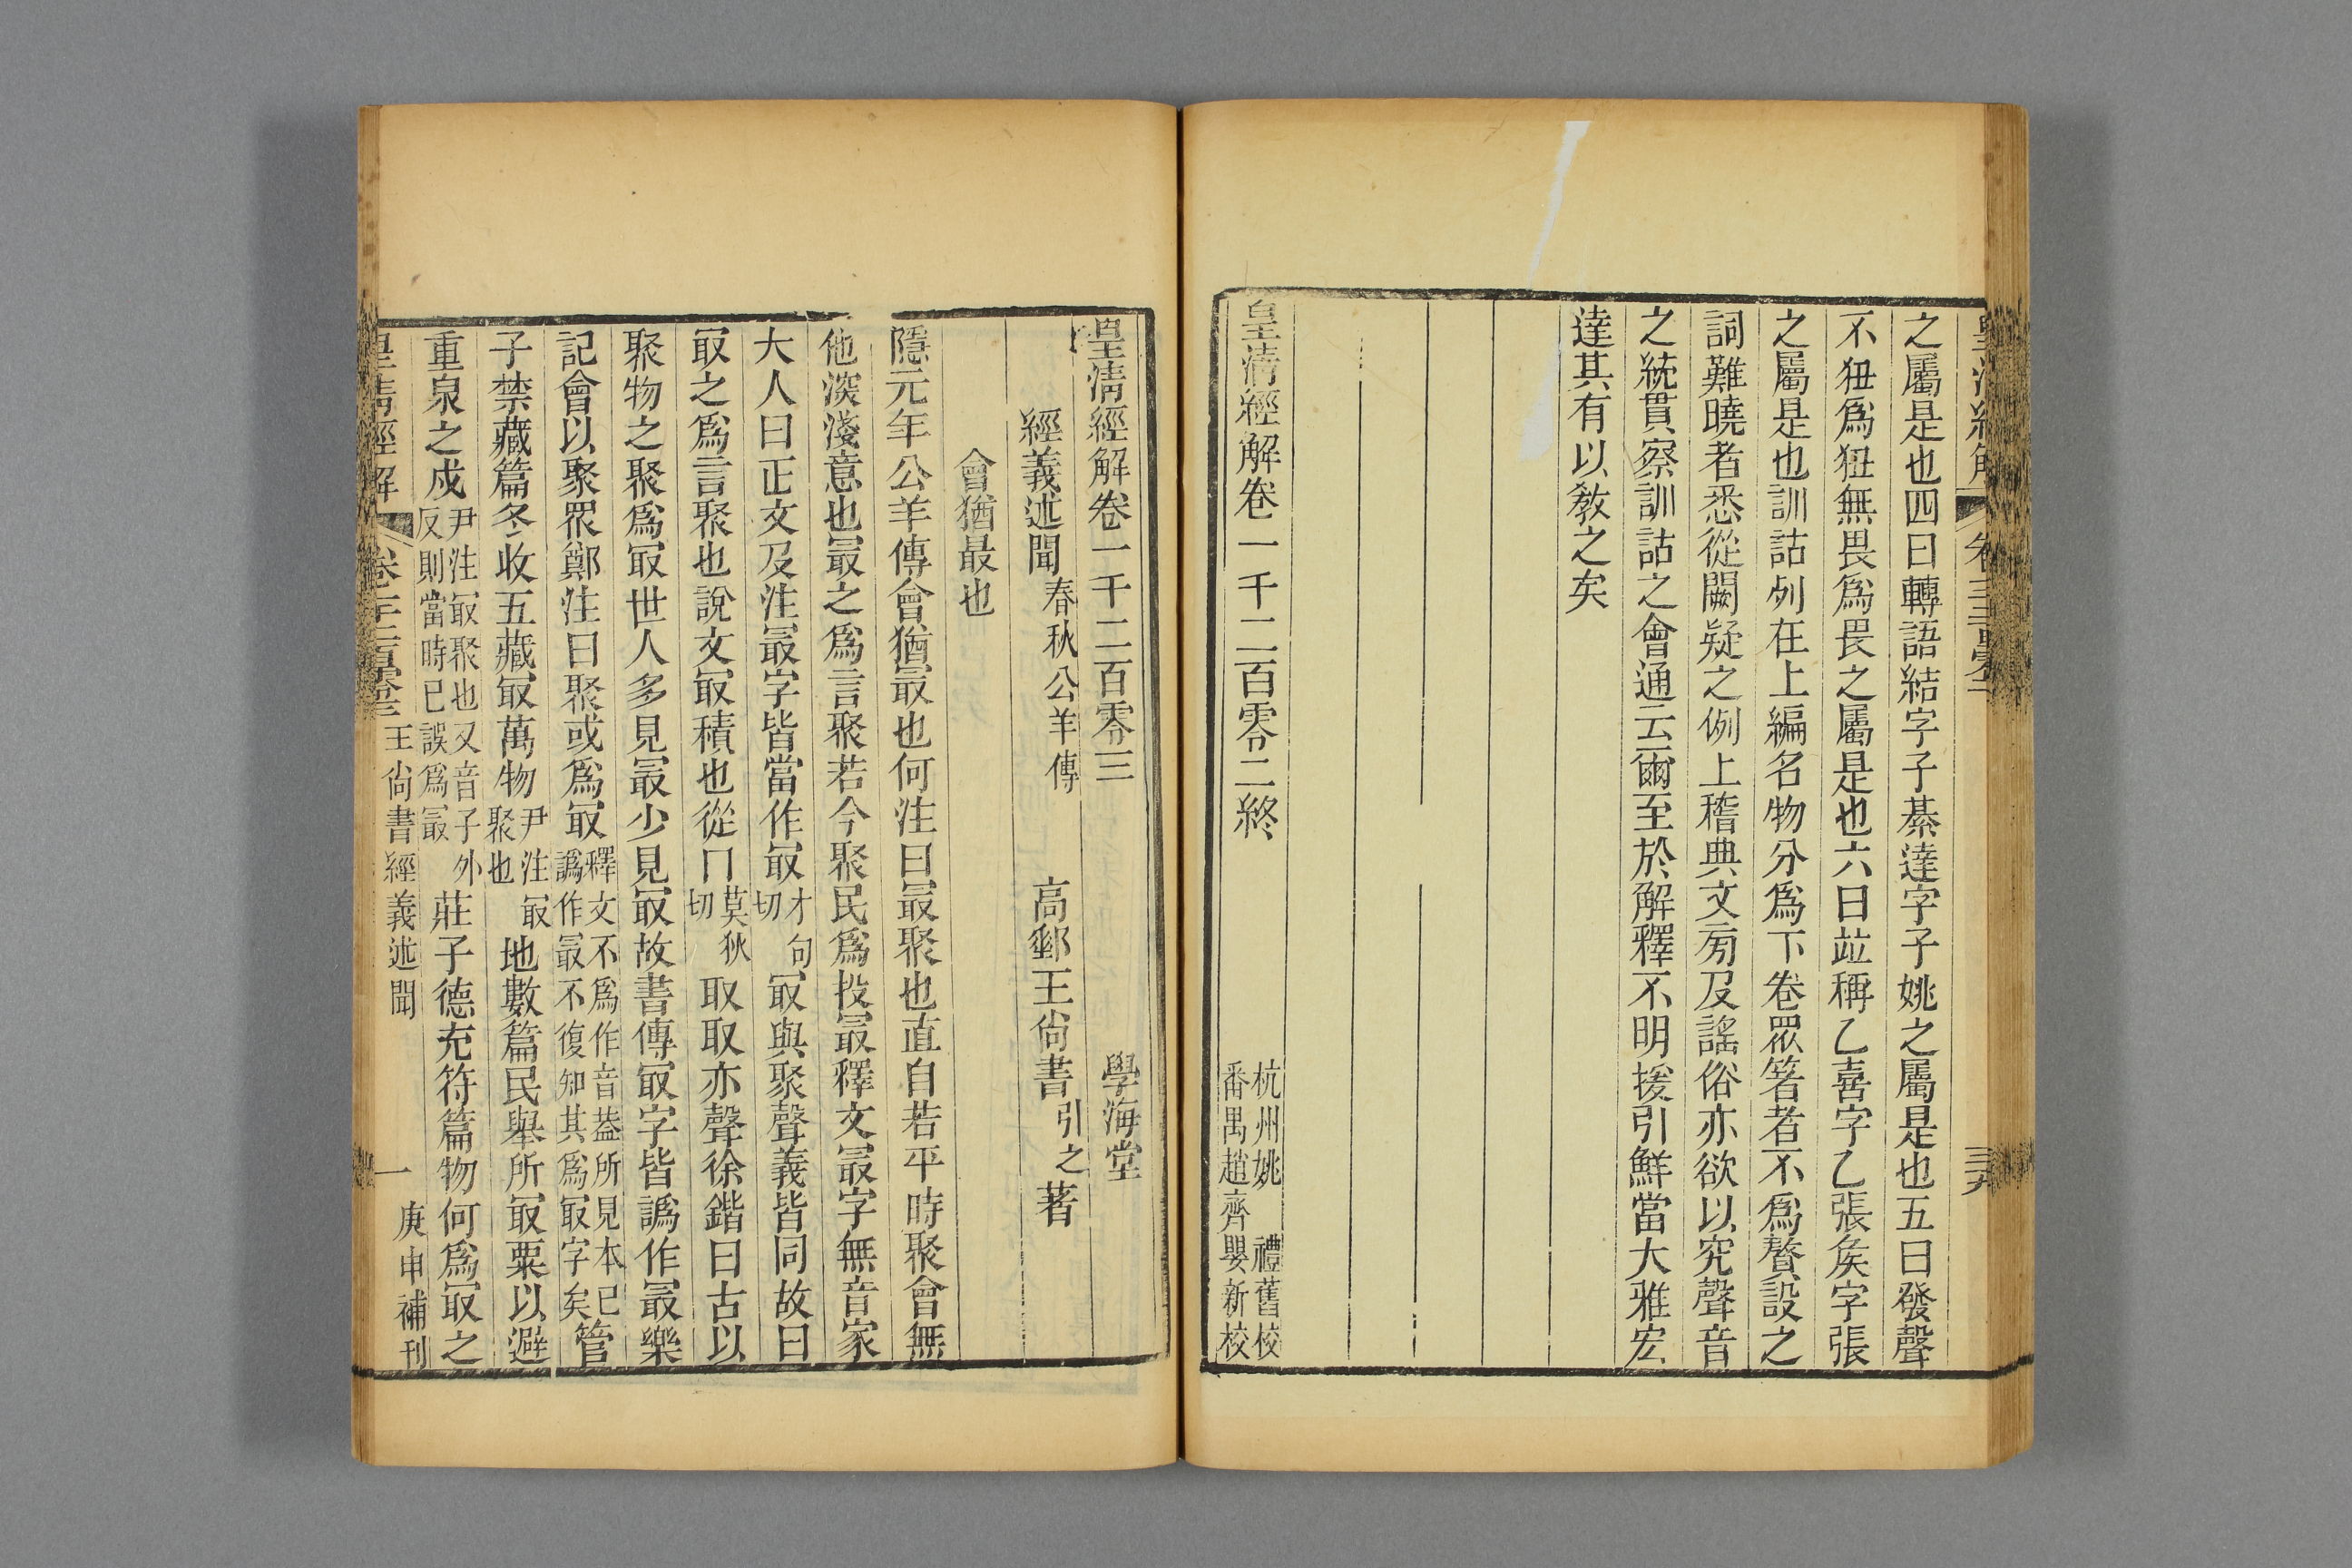 之屬是也四曰轉語結字子綦達字子姚之屬是也五曰發聲
不狃爲狃無畏爲畏之屬是也六曰竝稱乙喜字乙張矦字張
之屬是也訓詁列在上編名物分爲下卷眾箸者不爲贅設之
詞難曉者悉從闕疑之例上稽典文旁及謠俗亦欲以究聲音
之統貫察訓詁之會通云爾至於解釋不明援引鮮當大雅宏
達其有以敎之矣
皇淸經解卷一千二百零二終
杭州姚 禮舊校
番禺趙齊嬰新校
皇淸經解卷一千二百零三
學海堂
經義述聞春秋公羊傳
高郵王尙書引之著
會猶最也
隱元年公羊傳會猶冣也何注曰冣聚也直自若平時聚會無
他深淺意也冣之爲言聚若今聚民爲投冣釋文冣字無音家
大人曰正文及注冣字皆當作冣才句切冣與聚聲義皆同故曰
冣之爲言聚也說文冣積也從冖莫狄切取取亦聲徐鍇曰古以
聚物之聚爲冣世人多見最少見冣故書傳冣字皆譌作最樂
記會以聚眾鄭注曰聚或爲冣釋文不爲作音葢所見本已譌作最不復知其爲冣字矣管
子禁藏篇冬收五藏冣萬物尹注冣聚也地數篇民舉所冣粟以避
重泉之戍尹注冣聚也又音子外反則當時已誤爲最莊子德充符篇物何爲冣之
皇淸經解
卷一千二百零三
王尙書經義述聞
一
庚申補刊